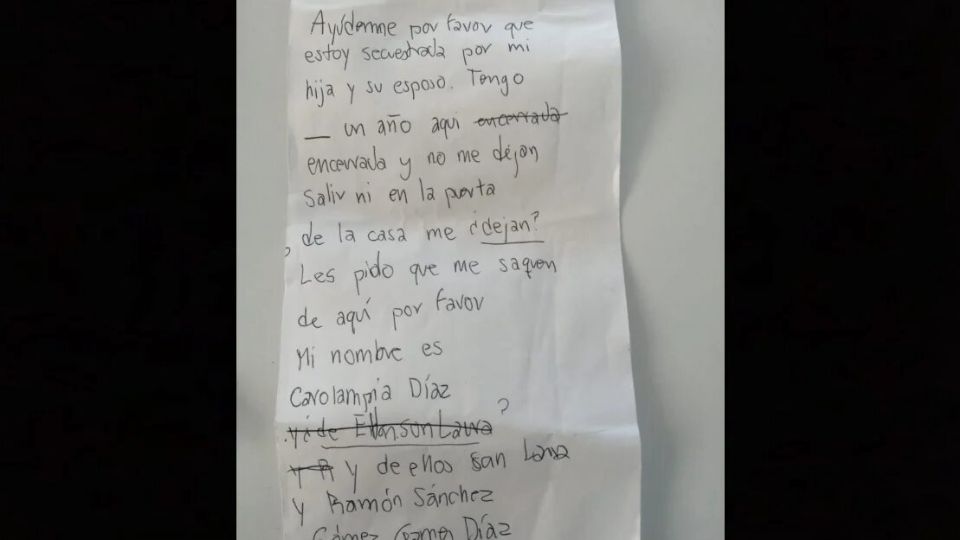 Ayúdenme por favor que
estoy secuestrada por mi
hija y su esposo. Tengo
_ un año aqui encerrada
encerrada y no me dejan
Salir ni en la puerta
, de la casa me ¿dejan?
Les pido que me saquen
de aquí por favor
Mi nombre es
Carolampia Díaz
?
y de ellos san
y Ramón Sánchez
Gómez Díaz